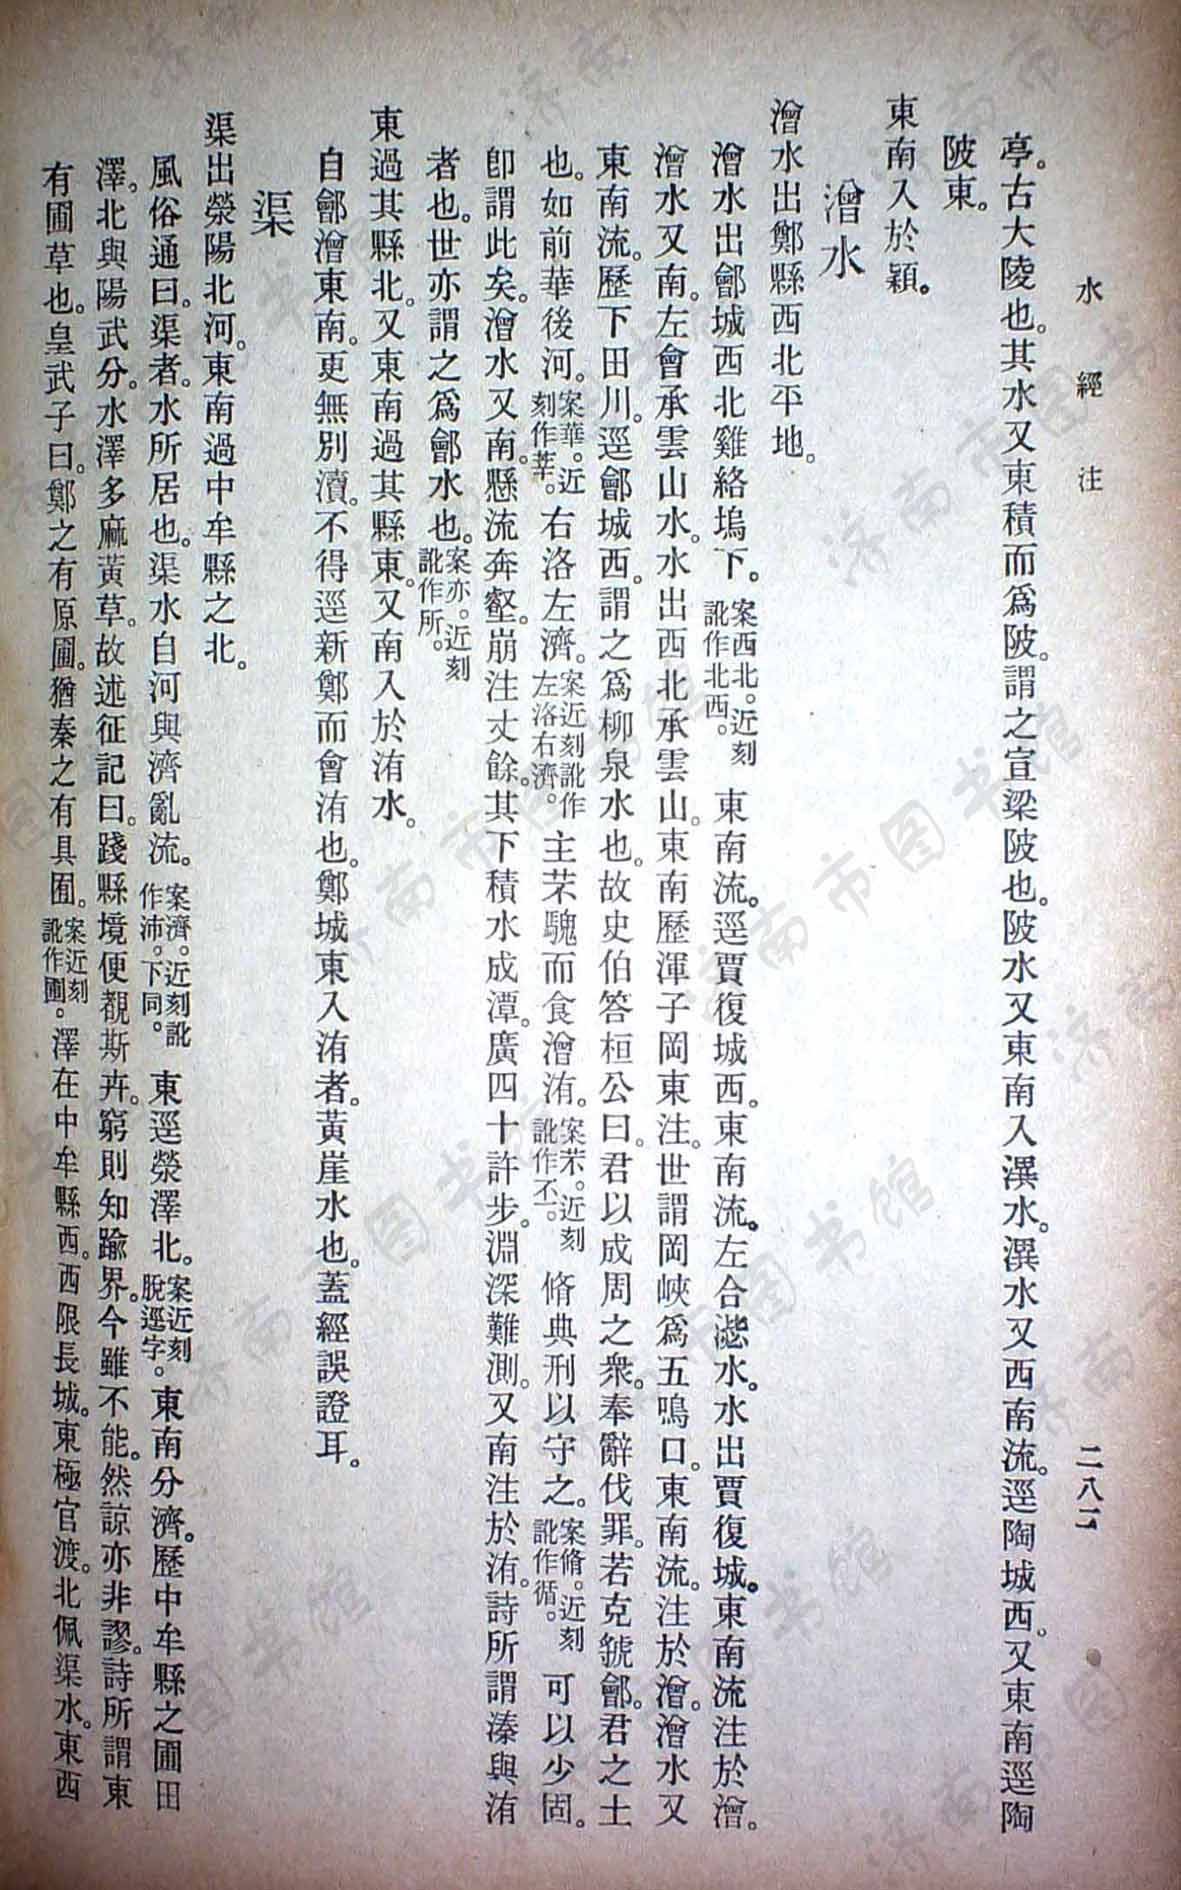 水經注
二八二
亭。古大陵也。其水又東積而爲陂。謂之宣梁陂也。陂水又東南入潩水。潩水又西南流。逕陶城西。又東南逕陶
陂東。
東南入於潁。
澮水
澮水出鄭縣西北平地。
澮水出鄶城西北雞絡塢下。案西北。近刻訛作北西。東南流。逕賈復城西。東南流。左合滺水。水出賈復城。東南流注於澮。
澮水又南。左會承雲山水。水出西北承雲山。東南歷渾子岡東注。世謂岡峽爲五鳴口。東南流。注於澮。澮水又
東南流。歷下田川。逕鄶城西。謂之爲柳泉水也。故史伯答桓公曰。君以成周之衆。奉辭伐罪。若克虢鄶。君之土
也。如前華後河。案華。近刻作莘。右洛左濟。案近刻訛作左洛右濟。主芣騩而食澮洧。案芣。近刻訛作不。脩典刑以守之。案脩。近刻訛作循。可以少固。
卽謂此矣。澮水又南。懸流奔壑。崩注丈餘。其下積水成潭。廣四十許步。淵深難測。又南注於洧。詩所謂溱與洧
者也。世亦謂之爲鄶水也。案亦。近刻訛作所。
東過其縣北。又東南過其縣東。又南入於洧水。
自鄶澮東南。更無別瀆。不得逕新鄭而會洧也。鄭城東入洧者。黃崖水也。蓋經誤證耳。
渠
渠出滎陽北河。東南過中牟縣之北。
風俗通曰。渠者。水所居也。渠水自河與濟亂流。案濟。近刻訛作沛。下同。東逕滎澤北。案近刻脫逕字。東南分濟。歷中牟縣之圃田
澤。北與陽武分。水澤多麻黃草。故述征記曰。踐縣境便覩斯卉。窮則知踰界。今雖不能。然諒亦非謬。詩所謂東
有圃草也。皇武子曰。鄭之有原圃。猶秦之有具囿。案近刻訛作圃。澤在中牟縣西。西限長城。東極官渡。北佩渠水。東西